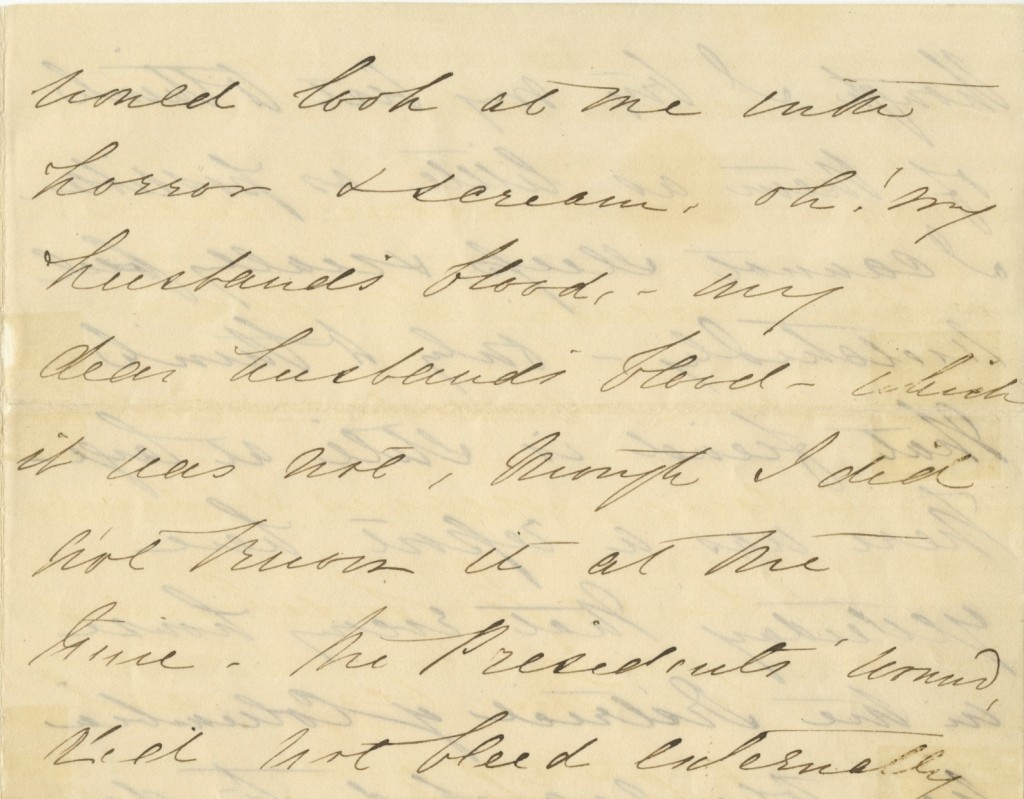 would look at me with
horror & scream. oh! my
husband's blood, - my
dear husband's blood - which
it was not, though I did
not know it at the
time. The President's wound
did not bleed externally